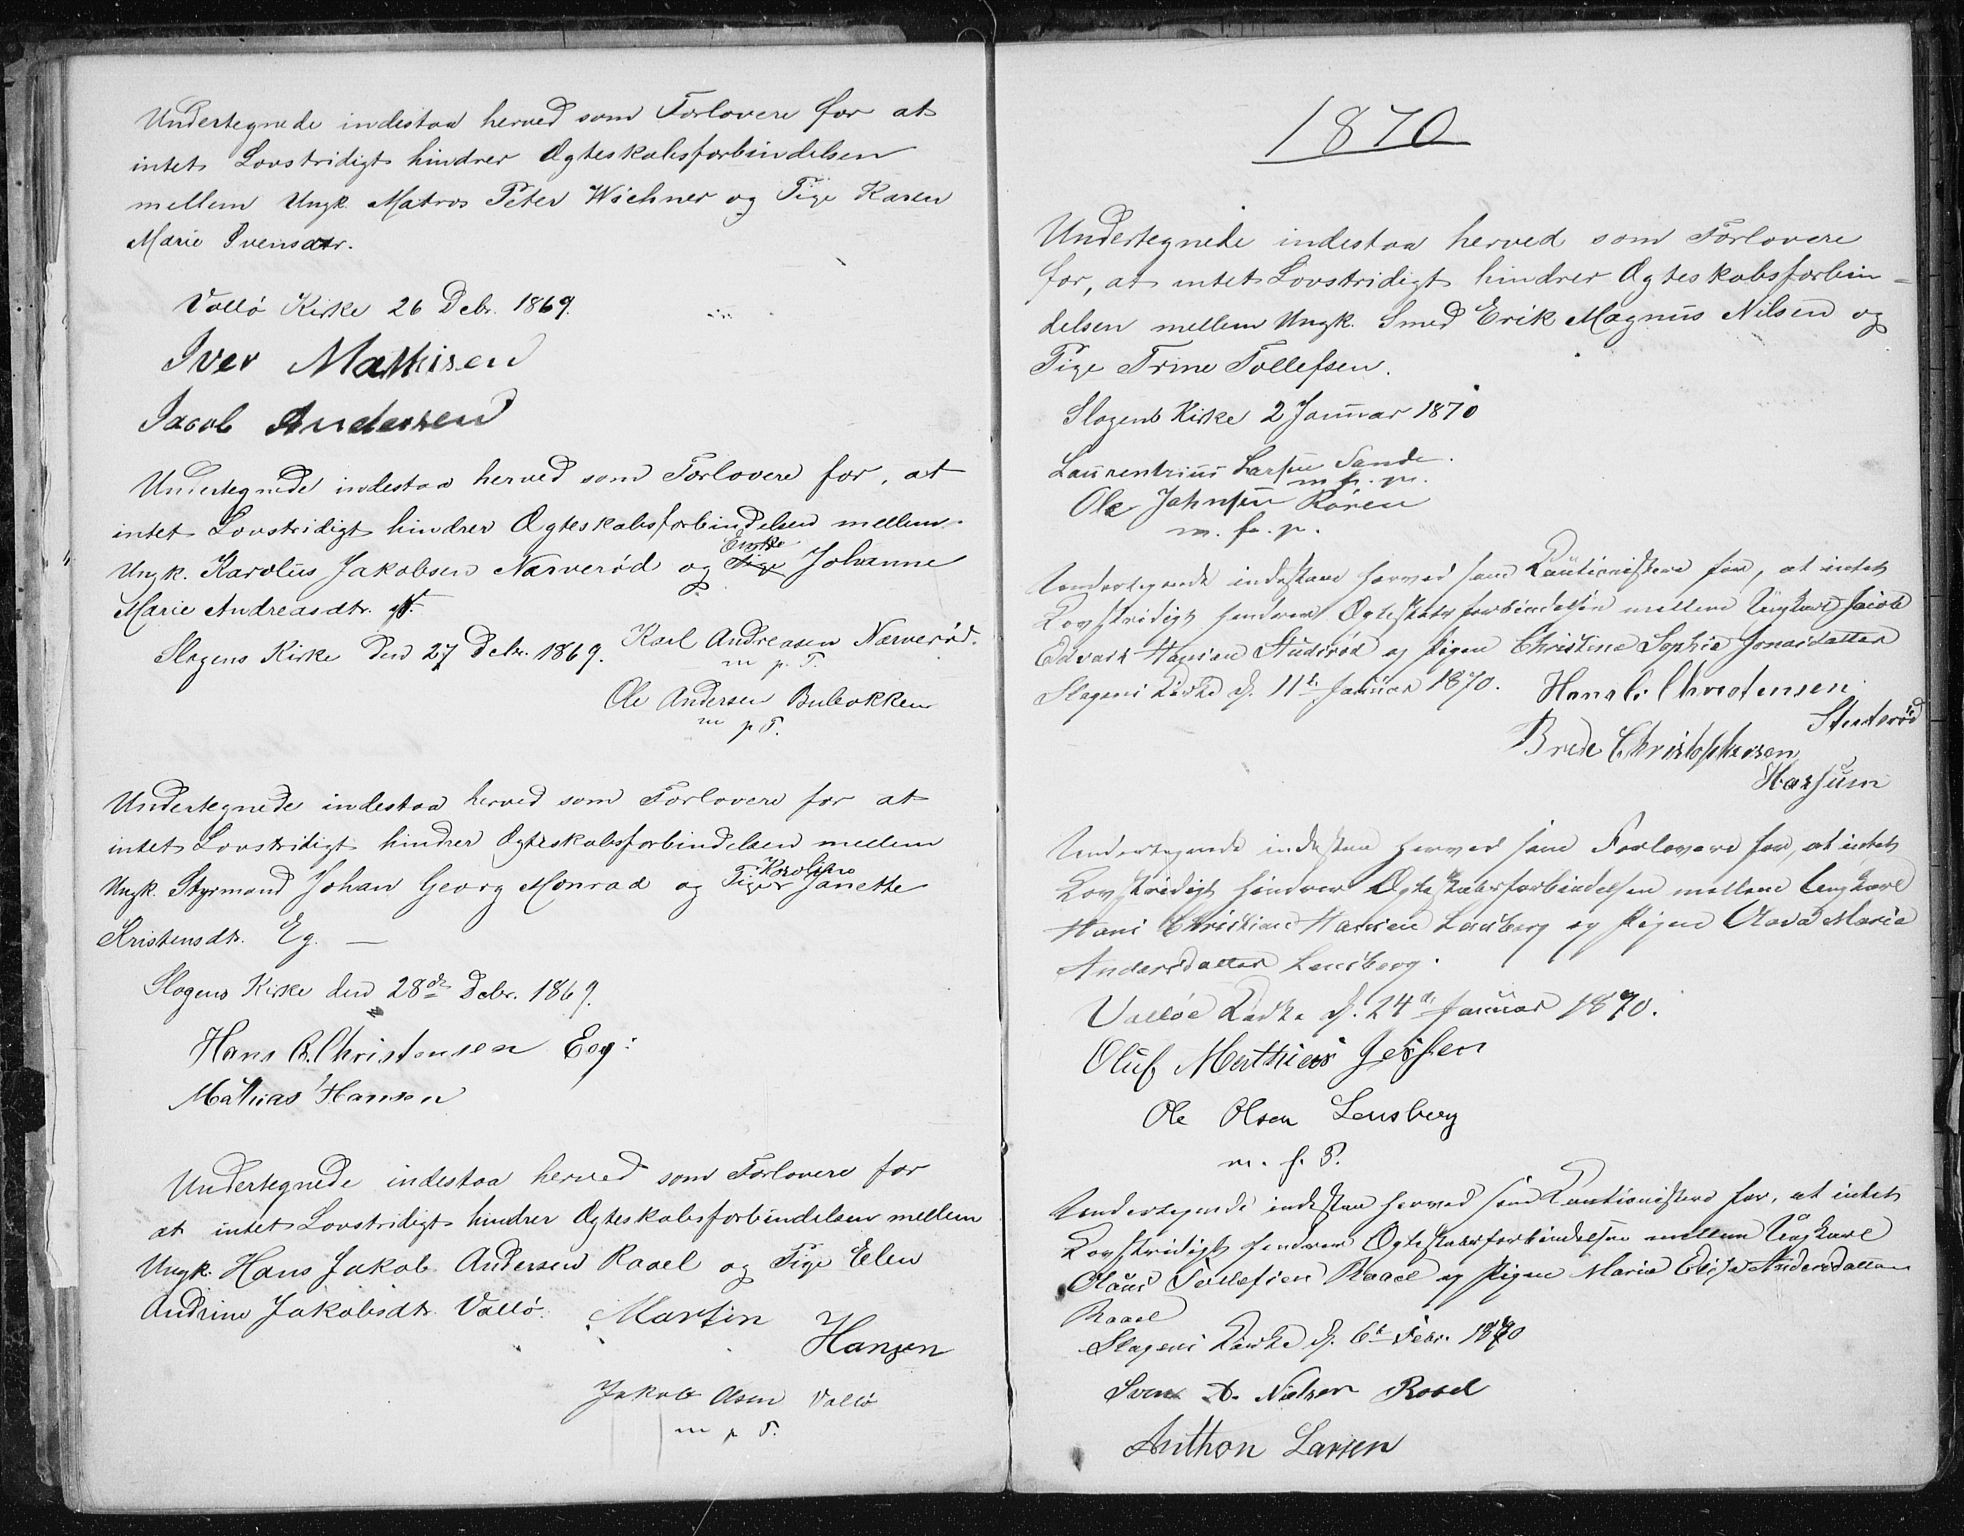 Undertegnede indestaa herved som Forlovere for at
intet Lovstridigt hindrer Ægteskabsforbindelsen
mellem Ungk. Matros Peter Wichner og Pige Karen
Marie Svensdtr.
Vallö Kirke 26 Debr. 1869.
Iver Mathisen
Jacob Andersen
Undertegnede indestaa herved som Forlovere for, at
intet Lovstridigt hindrer Ægteskabsforbindelsen mellem
Enke
Ungk. Karolus Jakobsen Narverød og Pige Johanne
Marie Andreasdtr.
Slagens Kirke den 27 Debr. 1869.
Karl Andreasen Narverød.
m p. F.
Ole Andersen Bulbakken
m p F.
Undertegnede indestaa herved som Forlovere for at
intet Lovstridigt hindrer Ægteskabsforbindelsen mellem
Karoline
Ungk. Styrmand Johan Georg Monrad og Pige Janette
Kristensdtr. Eg. —
Slagens Kirke den 28de Debr. 1869.
Hans C. Christensen Eeg:
Mathias Hansen
Undertegnede indestaa herved som Forlovere for
at intet Lovstridigt hindrer Ægteskabsforbindelsen mellem
Ungk. Hans Jakob Andersen Raael og Pige Elen
Andrine Jakobsdtr. Vallö.
Martin
Hansen
Jakob Olsen Vallö
m p F.
1870
Undertegnede indestaa herved som Forlovere
for, at intet Lovstridigt hindrer Ægteskabsforbin-
delsen mellem Ungk. Smed Erik Magnus Nilsen og
Pige Trine Tollefsen.
Slagens Kirke 2 Januar 1870
Laurentzius Larsen Sande.
m. f. p.
Ole Johnsen Røren
m. f. p.
Undertegnede indestaae herved som Kautionister for, at intet
Lovstridigt hindrer Ægteskabsforbindelsen mellem Ungkarl Jacob
Edvart Hansen Studsrød og Pigen Christine Sophie Jonasdatter
Slagens Kirke d. 11t Januar 1870.
Hans C. Christensen
Stutsrød
Brede Christophersen
Hassum
Undertegnede indestaae herved som Forlovere for, at intet
Lovstridigt hindrer Ægteskabsforbindelsen mellem Ungkarl
Hans Christian Hansen Lensberg og Pigen Olava Marie
Andersdatter Lensberg.
Valløe Kirke d. 24de Januar 1870.
Oluf Mathias Jensen
Ole Olsen Lensberg
m. f. P.
Undertegnede indestaae herved som Kautionister for, at intet
Lovstridigt hindrer Ægteskabsforbindelsen mellem Ungkarl
Olaus Tollefsen Raael og Pigen Maria Elisa Andersdatter
Raael
Slagens Kirke d. 6t Febr. 1870
Sven A. Nielsen Rael
Anthon Larsen